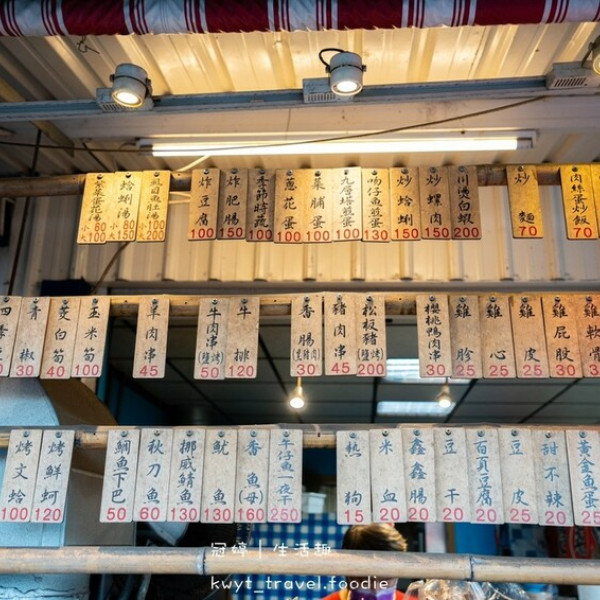 蛤蜊湯
小 80
大 150
虱目魚肚湯
小 100
大 200
炸豆腐
100
炸肥腸
150
季節時蔬
100
蔥花蛋
100
菜脯蛋
100
九層塔煎蛋
100
吻仔魚煎蛋
130
炒蛤蜊
150
炒螺肉
150
川燙白蝦
200
炒麵
70
肉絲蛋炒飯
70
青椒
30
茭白筍
40
玉米筍
100
羊肉串
45
牛肉串(鹽烤)
50
牛排
120
香腸(黑豬肉)
30
豬肉串
45
松板豬(鹽烤)
200
櫻桃鴨肉串
30
雞胗
25
雞心
25
雞皮
25
雞屁股
30
雞軟骨
烤文蛤
100
烤鮮蚵
120
鯛魚下巴
50
秋刀魚
60
挪威鯖魚
130
魷魚
130
香魚(母)
160
午仔魚一夜干
250
熱狗
15
米血
20
鑫鑫腸
20
豆干
20
百頁豆腐
20
豆皮
20
甜不辣
20
黃金魚蛋
25
冠婷｜生活趣
kwyt_travel.foodie